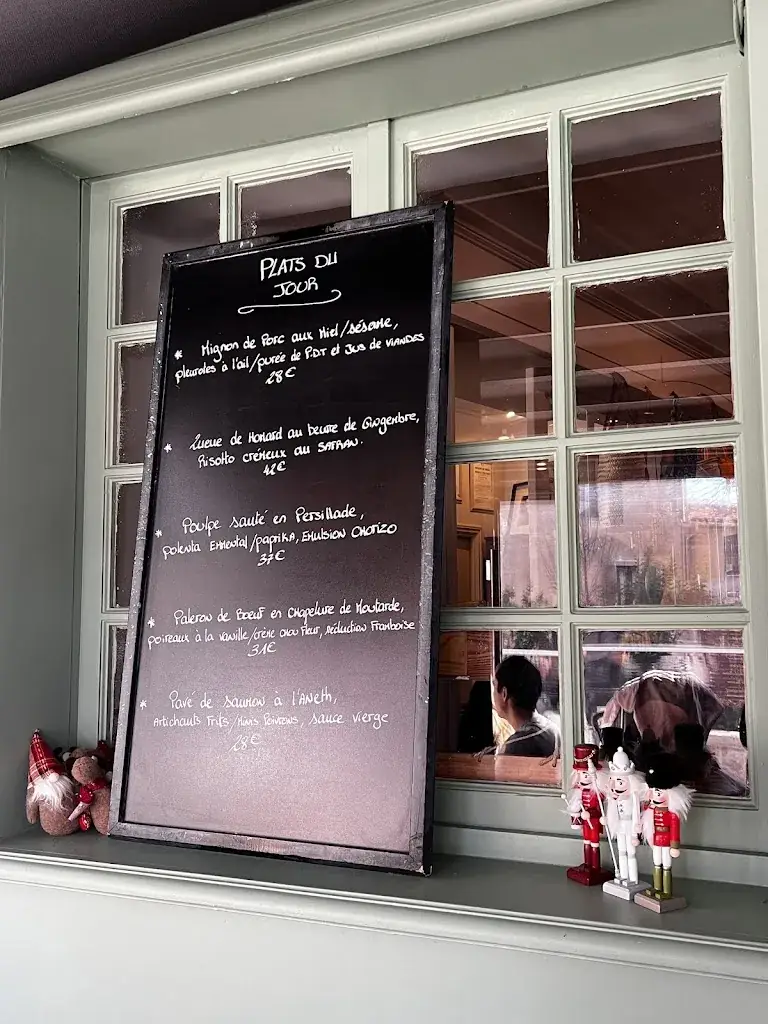 PLATS DU
JOUR
* Mignon de Porc aux Miel/sésame,
pleurotes à l'ail/purée de P.DT et JUS de VIANDES
28€
* Queue de Homard au beurre de Gingembre,
Risotto crémeux au SAFRAN.
42€
* Poulpe sauté en Persillade,
polenta Emmental/paprika, Emulsion CHORIZO
37€
* Paleron de Boeuf en Chapelure de Moutarde,
poireaux à la vanille/crème chou Fleur, réduction Framboise
31€
* Pavé de saumon à l'ANeth,
Artichauts Frits/Minis Poivrons, sauce vierge
28€